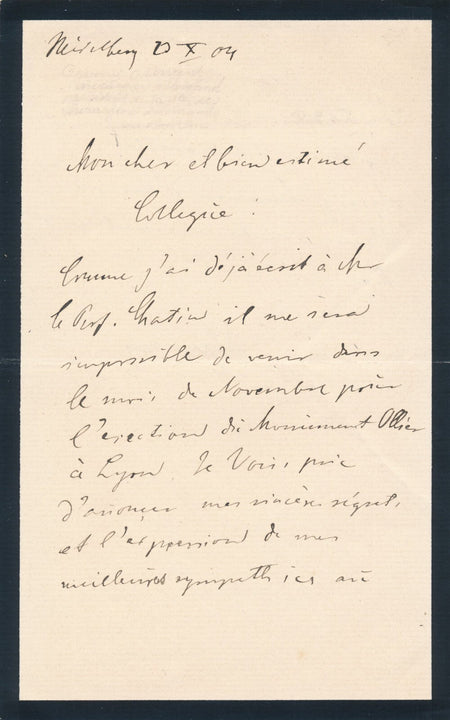 Heidelberg X 04
Mon cher et bien estimé
Collegüe !
Comme j'ai déjà écrit à Mr
le Prof. il me sera
impossible de venir dans
le mois de Novembre poür
l'erection dü Monument Ollier
à Lyon. Je Vous prie
d'anoncer mes sincères régrets
et l'expression de mes
meilleures sympathies aü